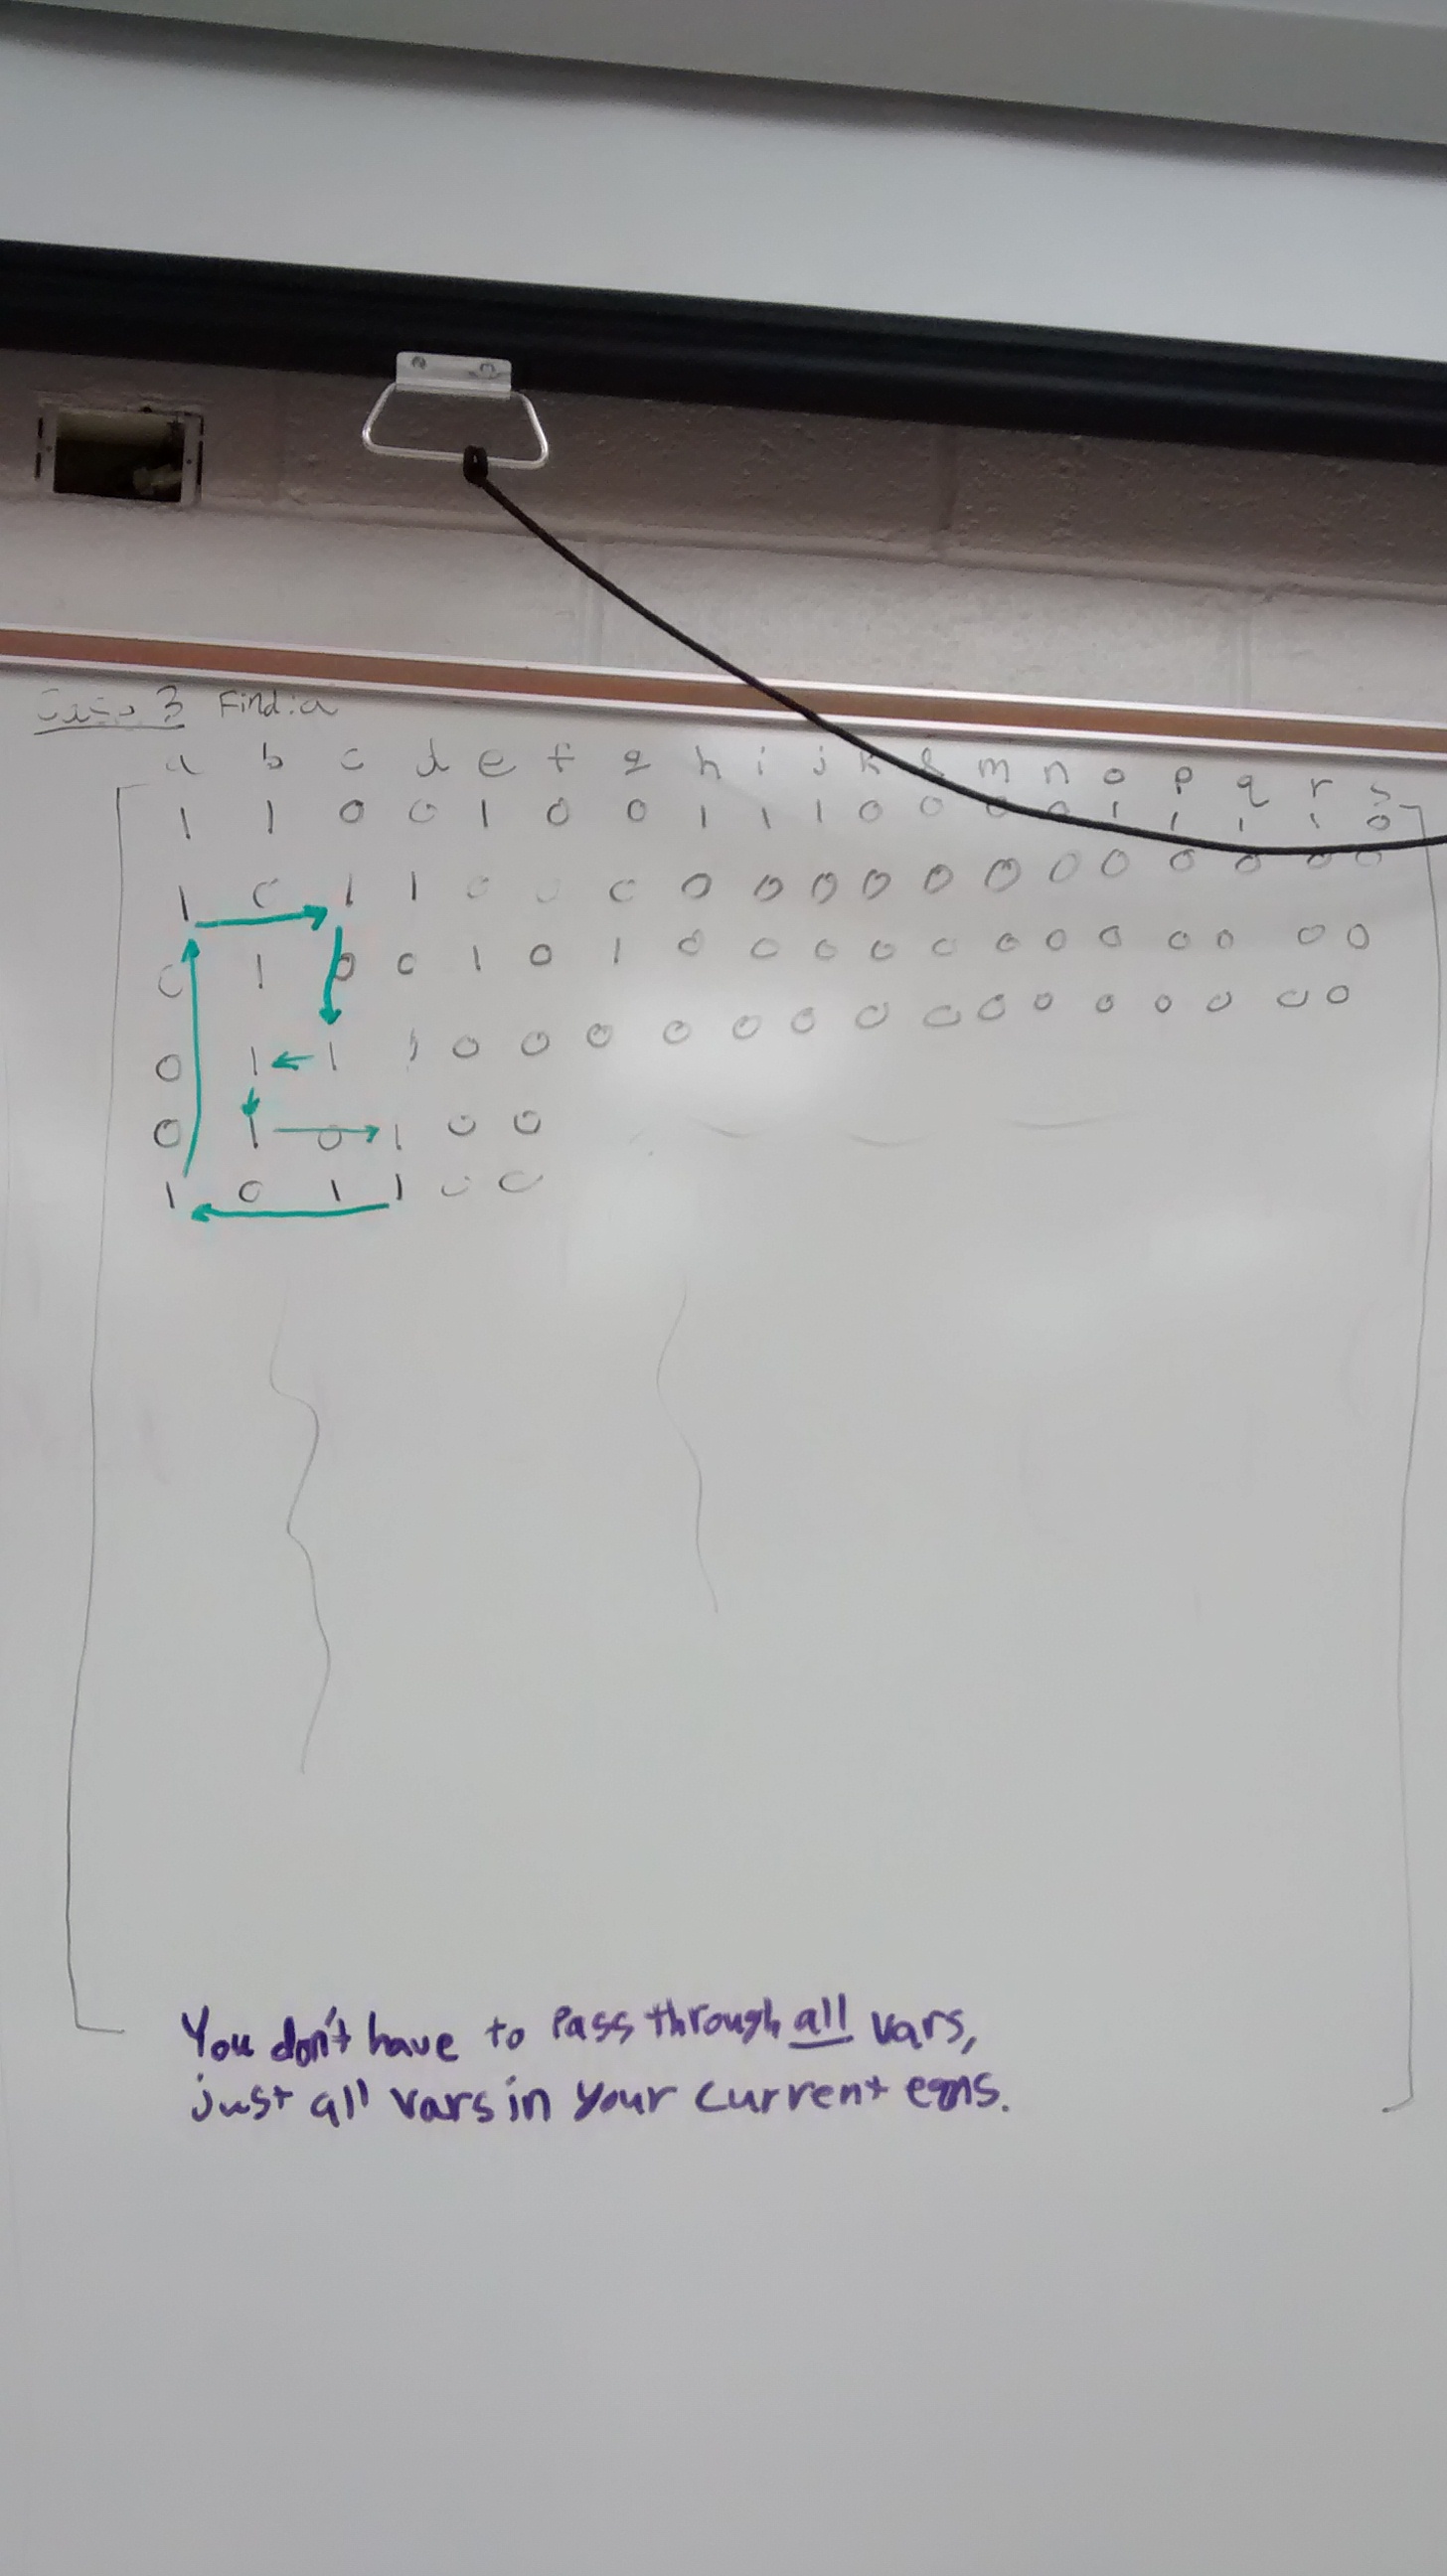 Case 3 Find: a
a b c d e f g h i j k l m n o p q r s
1 1 0 0 1 0 0 1 1 1 0 0 0 0 1 1 1 1 0
1 0 1 1 0 0 0 0 0 0 0 0 0 0 0 0 0 0 0
0 1 0 0 1 0 1 0 0 0 0 0 0 0 0 0 0 0 0
0 1 1 1 0 0 0 0 0 0 0 0 0 0 0 0 0 0 0
0 1 0 1 0 0
1 0 1 1 0 0
You don't have to Pass through all vars,
just all vars in your current eqns.